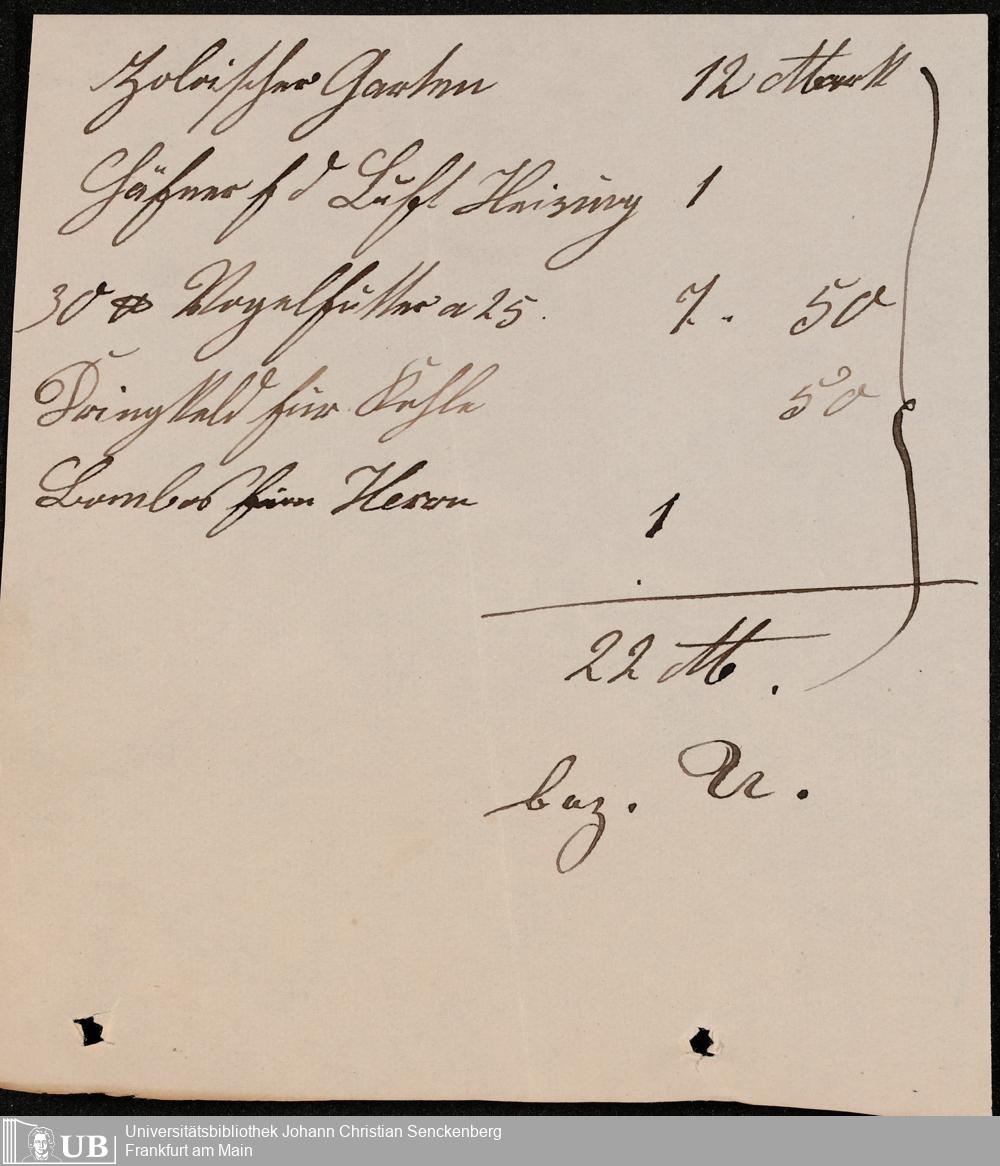 Zoloischer Garten 12 Mark
Häfner f d Luft Heizung 1
30 ℔ Vogelfutter a 25. 7. 50
Tringkeld für Kohle 50
Bombos Herrn 1
22 M.
bez.
UB Universitätsbibliothek Johann Christian Senckenberg
Frankfurt am Main